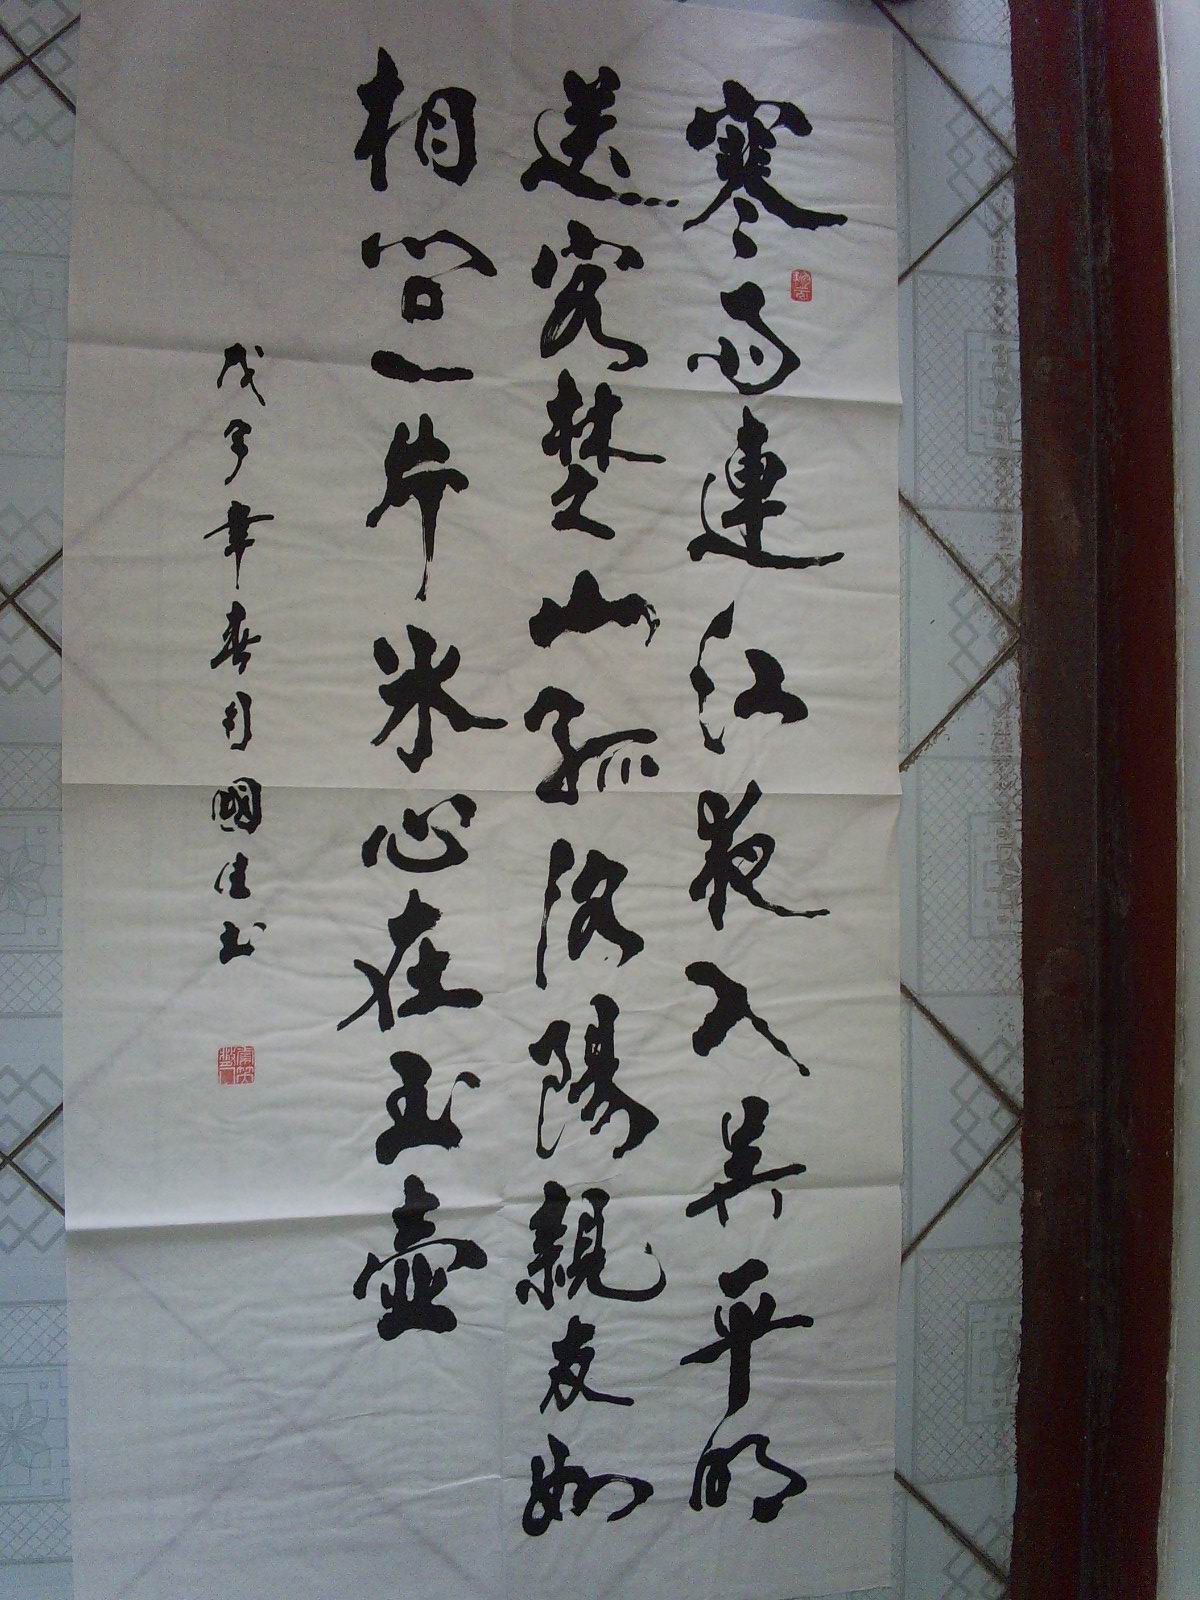 寒雨連江夜入吳平明
送客楚山孤洛陽親友如
相問一片氷心在玉壺
戊子年春月國佳书